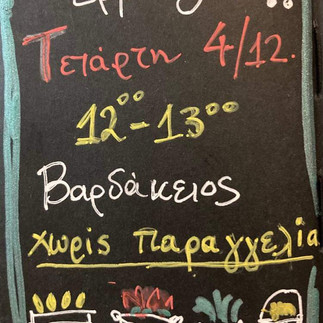 Τετάρτη 4/12.
12⁰⁰-13⁰⁰
Βαρδάκειος
χωρίς παραγγελία